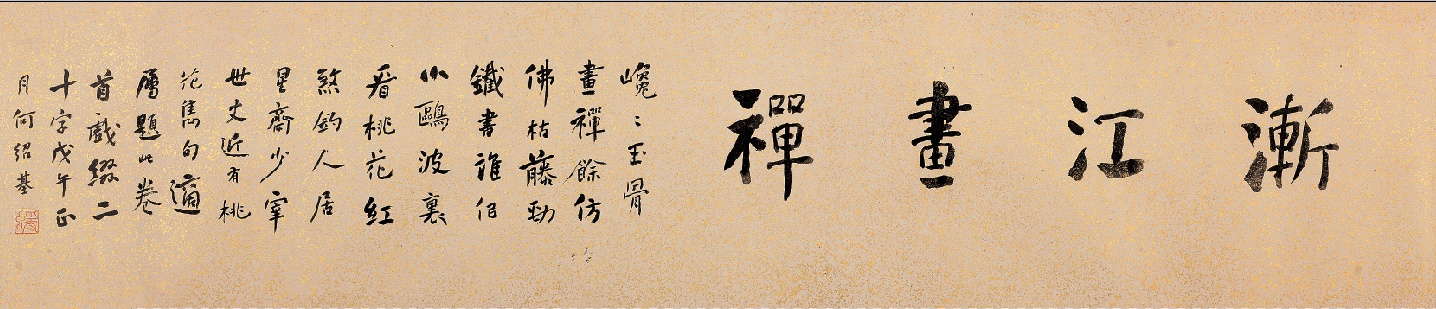 漸江畫禪
巉〻玉骨
畫禪餘仿
佛枯藤勁
鐵書誰
小鷗波裏
看桃花紅
煞釣人居
星齋少宰
世丈近有桃
花雋句適
屬題此卷
首戲綴二
十字戊午正
月何紹基